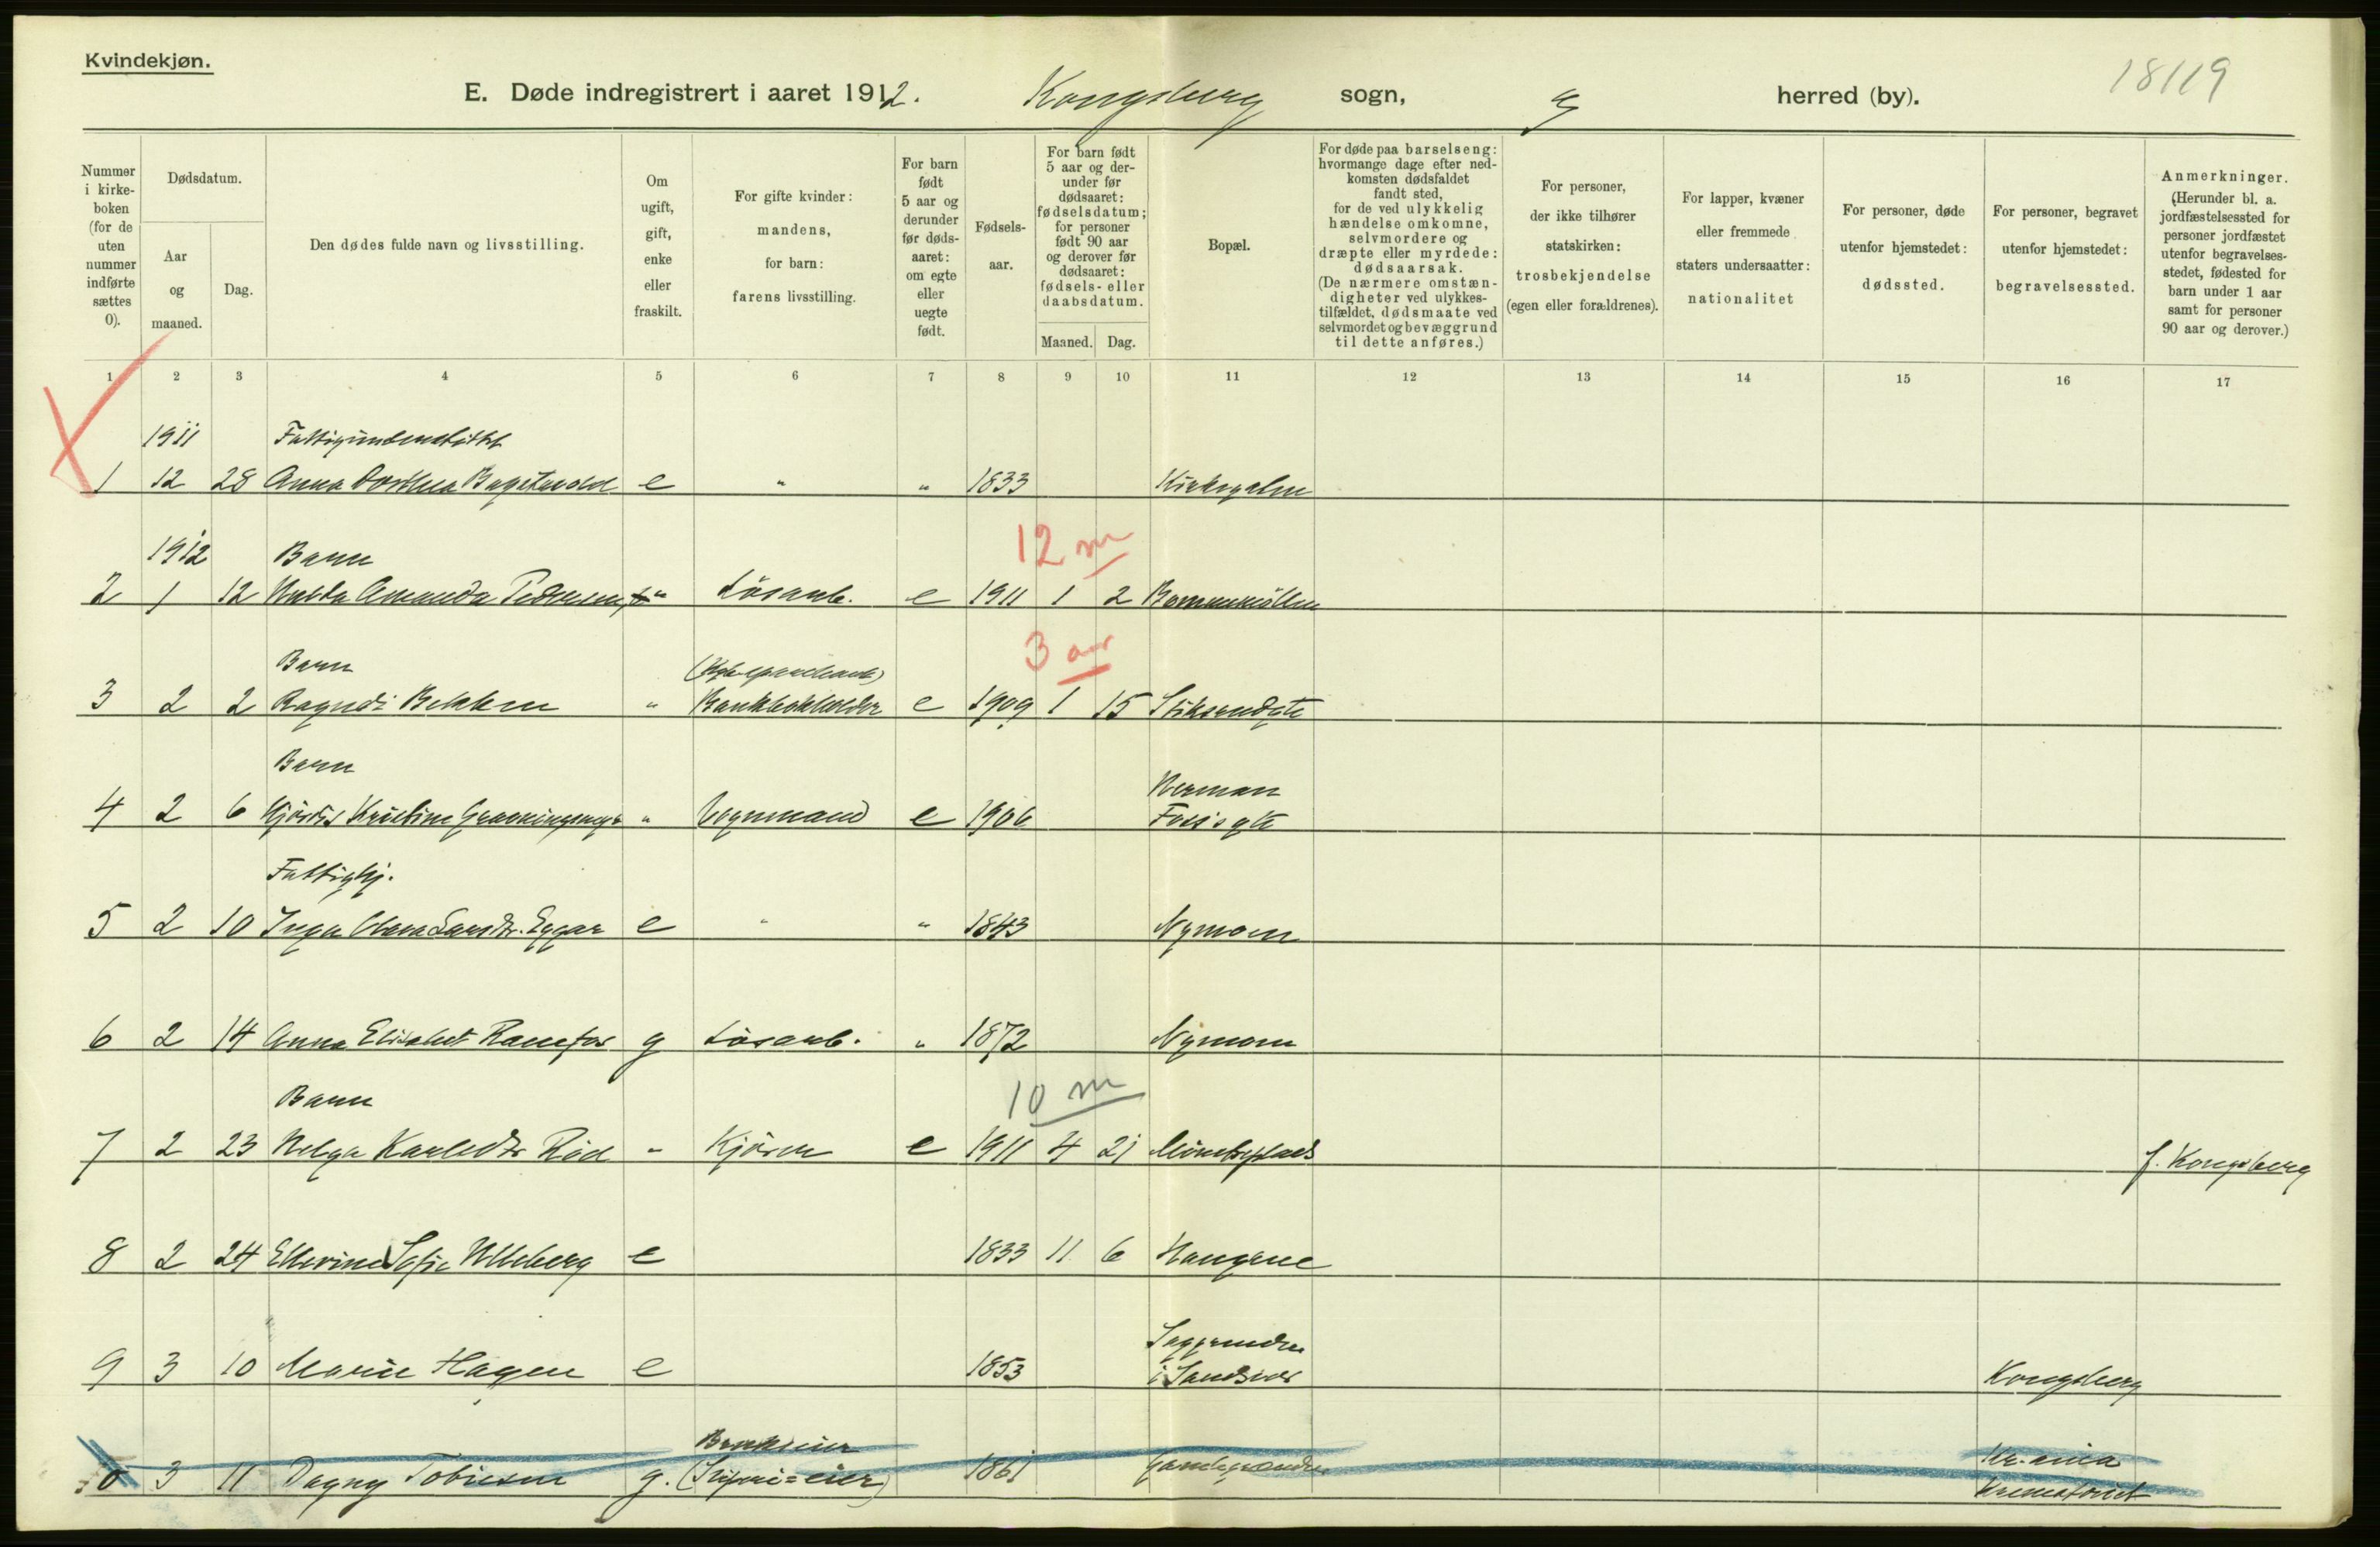 Kvindekjøn.
18119
E. Døde indregistrert i aaret 1912. Kongsberg sogn, herred (by).
Nummer i kirke- boken (for de uten nummer indførte sættes 0).
Dødsdatum.
Aar og maaned.
Dag.
Den dødes fulde navn og livsstilling.
Om ugift, gift, enke eller fraskilt.
For gifte kvinder: mandens, for barn: farens livsstilling.
For barn født 5 aar og derunder før døds- aaret: om egte eller uegte født.
Fødsels- aar.
For barn født 5 aar og der- under før dødsaaret: fødselsdatum; for personer født 90 aar og derover før dødsaaret: fødsels- eller daabsdatum.
Maaned. Dag.
Bopæl.
For døde paa barselseng: hvormange dage efter ned- komsten dødsfaldet fandt sted, for de ved ulykkelig hændelse omkomne, selvmordere og dræpte eller myrdede: dødsaarsak. (De nærmere omstæn- digheter ved ulykkes- tilfældet, dødsmaate ved selvmordet og bevæggrund til dette anføres.)
For personer, der ikke tilhører statskirken: trosbekjendelse (egen eller forældrenes).
For lapper, kvæner eller fremmede staters undersaatter: nationalitet
For personer, døde utenfor hjemstedet: dødssted.
For personer, begravet utenfor hjemstedet: begravelsessted.
Anmerkninger. (Herunder bl. a. jordfæstelsessted for personer jordfæstet utenfor begravelses- stedet, fødested for barn under 1 aar samt for personer 90 aar og derover.)
1 2 3 4 5 6 7 8 9 10 11 12 13 14 15 16 17
1911 Fattigunderstøttet
1 12 28 Anna Dorthea e " " 1833
12 m
1912 Barn
2 1 12 Hulda Amanda Pedersen " Løsarb. e 1911 1 2
3 aar
Barn
3 2 2 Ragndi Bekken " Bankbokholder e 1909 1 15
Barn Herman
4 2 6 Hjørdis Kristine " Vognmand e 1906 Foss's gt
Fattighj.
5 2 10 Inga Olava Larsdtr. Eggar e " " 1843 Nymoen
6 2 14 Anna Elisabet Ramfos g Løsarb. " 1872 Nymoen
10 m
Barn
7 2 23 Helga Karlsdtr Rød " Kjører e 1911 4 21 Myntsplads f. Kongsberg
8 2 24 Ellevine Sofie Ulleberg e 1833 11 6 Haugene
Saggrenden
9 3 10 Marie Hagen e 1853 i Sandsvær Kongsberg
Brukseier Kr.ania
0 3 11 Dagny Tobiesen g. 1861 Gamlegrænden Krematoriet